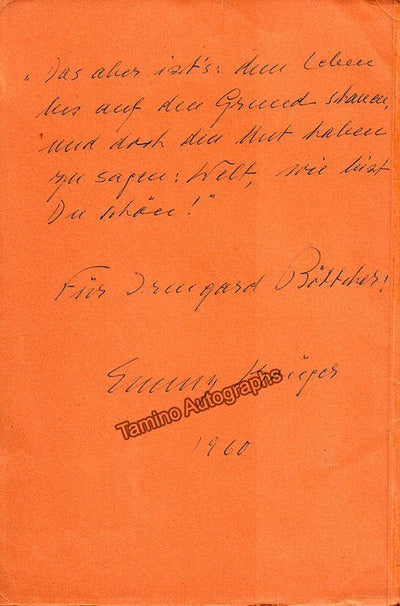 „Das aber ist's: dem Leben
bis auf den Grund schauen,
und doch den Mut haben
zu sagen: Welt, wie bist
Du schön!"
Für Irmgard Böttcher!
Emmy Krüger
Tamino Autographs
1960